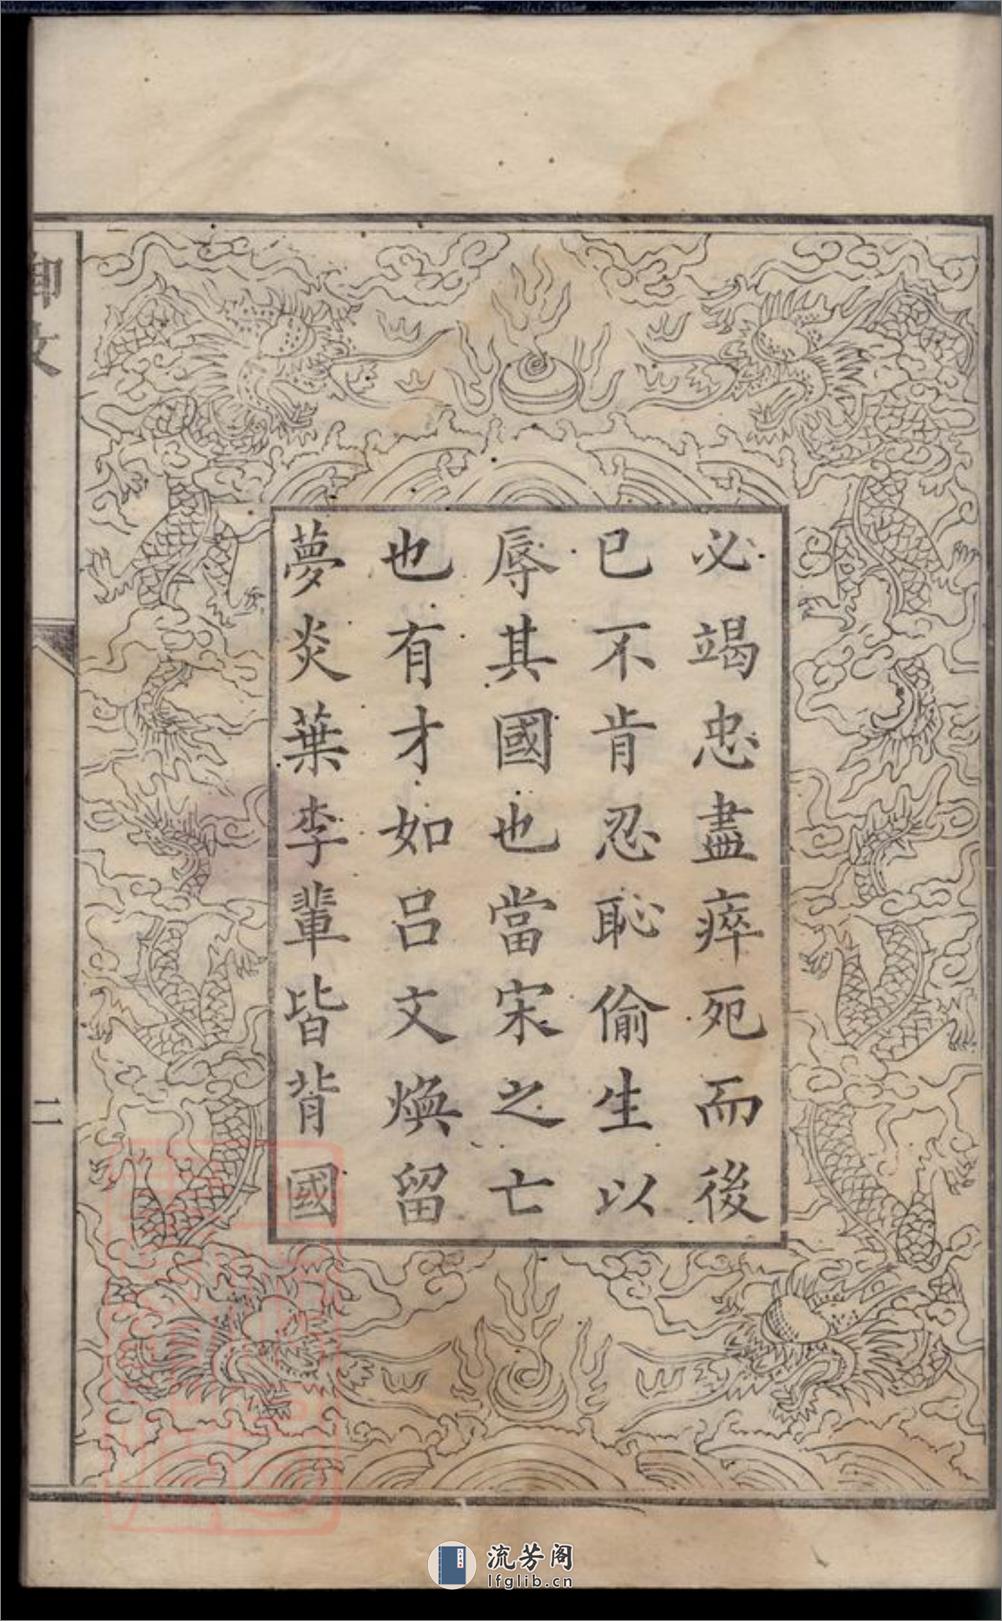 必竭忠盡瘁死而後
已不肯忍恥偷生以
辱其國也當宋之亡
也有才如呂文煥留
夢炎葉李輩皆背國
御文
二
流芳阁
lfglib.cn